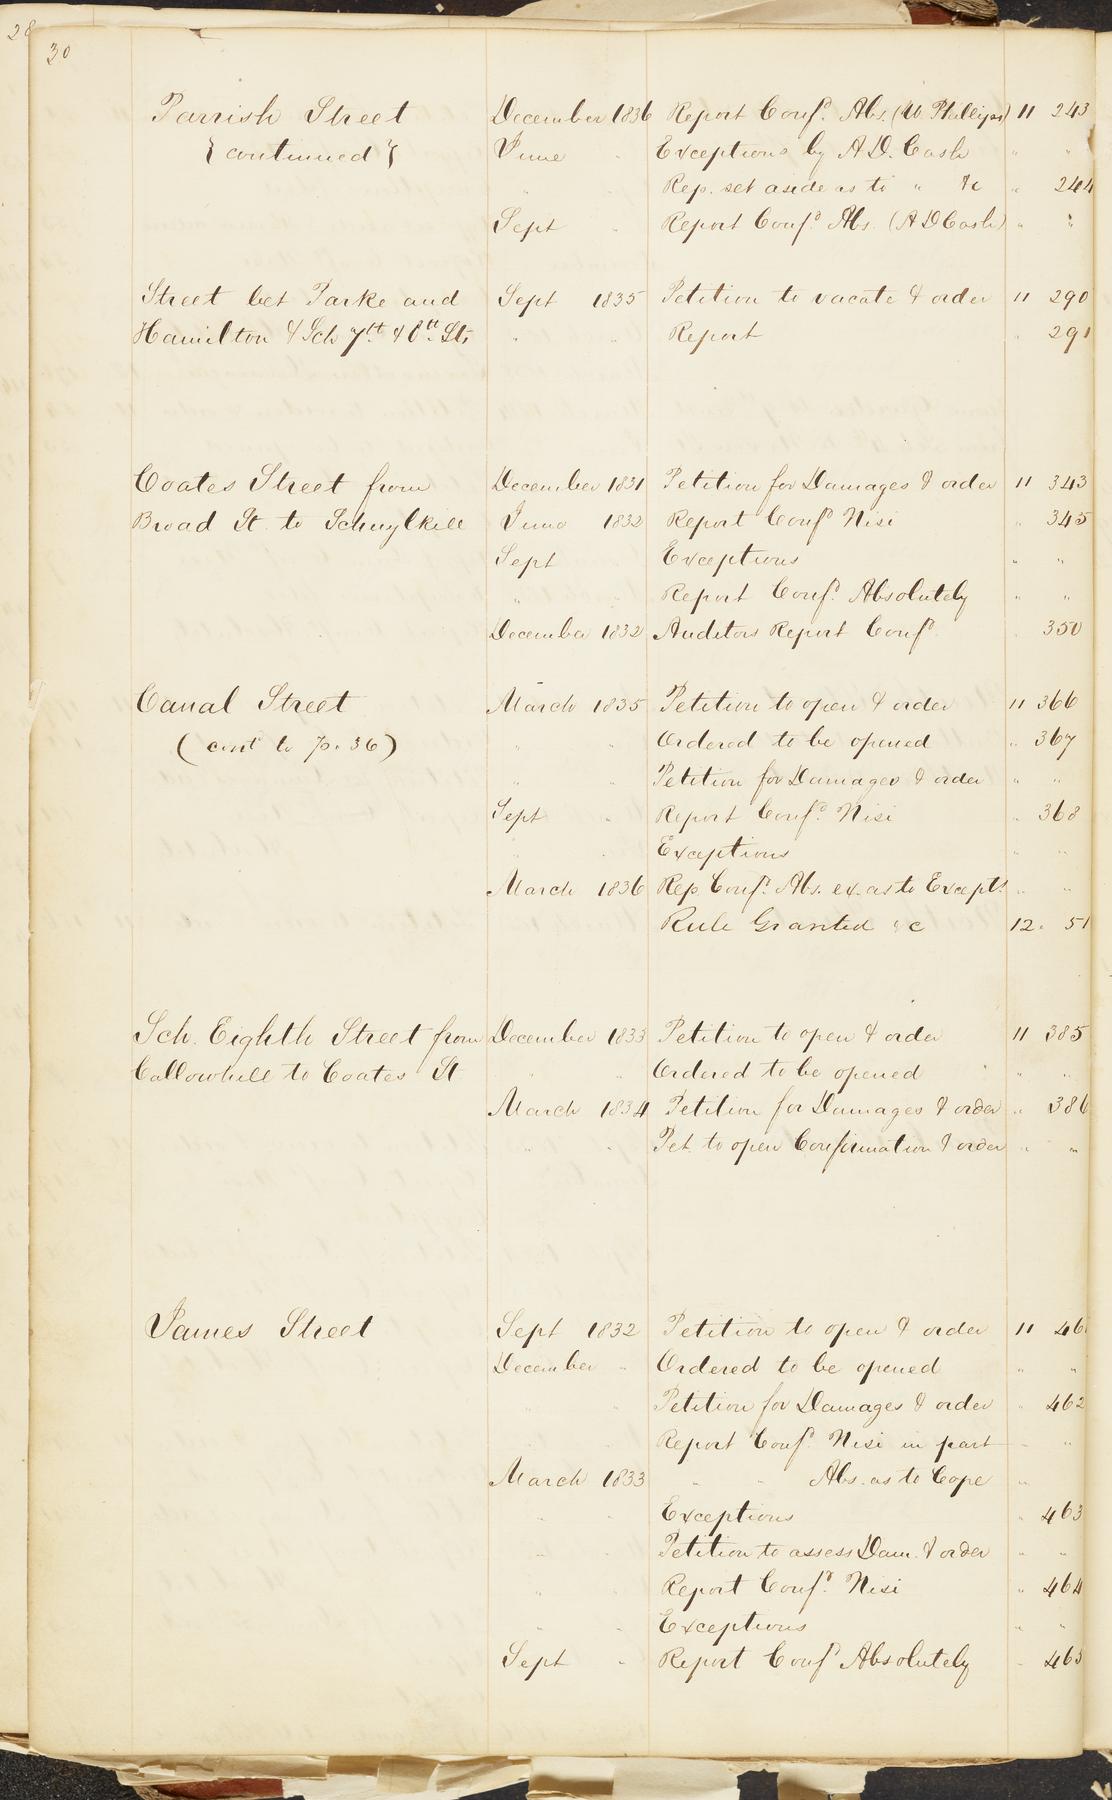 28
30
Parrish Street December 1836 Report Conf.d Abs. (W. Phillips) 11 243
{continued} June " Exceptions by A D. Cash " "
" " Rep. set aside as to " &c " 244
Sept " Report Conf.d Abs. (A D Cash) " "
Street bet Parke and Sept 1835 Petition to vacate & order 11 290
Hamilton & Sch 7th & 8th Sts " " Report " 291
Coates Street from December 1831 Petition for Damages & order 11 343
Broad St. to Schuylkill June 1832 Report Conf.d Nisi " 345
Sept Exceptions " "
" Report Conf.d Absolutely " "
December 1832 Auditors Report Conf.d " 350
Canal Street March 1835 Petition to open & order 11 366
(cont to p. 36) " " Ordered to be opened " 367
" " Petition for Damages & order " "
Sept " Report Conf.d Nisi " 368
" " Exceptions " "
March 1836 Rep Conf.d Abs. ex. as to Excepts. " "
Rule Granted &c 12. 51
Sch. Eighth Street from December 1833 Petition to open & order 11 385
Callowhill to Coates St " " Ordered to be opened " "
March 1834 Petition for Damages & order " 386
" " Pet. to open Confirmation & order " "
James Street Sept 1832 Petition to open & order 11 461
December " Ordered to be opened " "
" " Petition for Damages & order " 462
" " Report Conf.d Nisi in part " "
March 1833 " " Abs. as to Cope "
" " Exceptions " 463
" " Petition to assess Dam. & order " "
" " Report Conf.d Nisi " 464
" " Exceptions " "
Sept " Report Conf.d Absolutely " 465